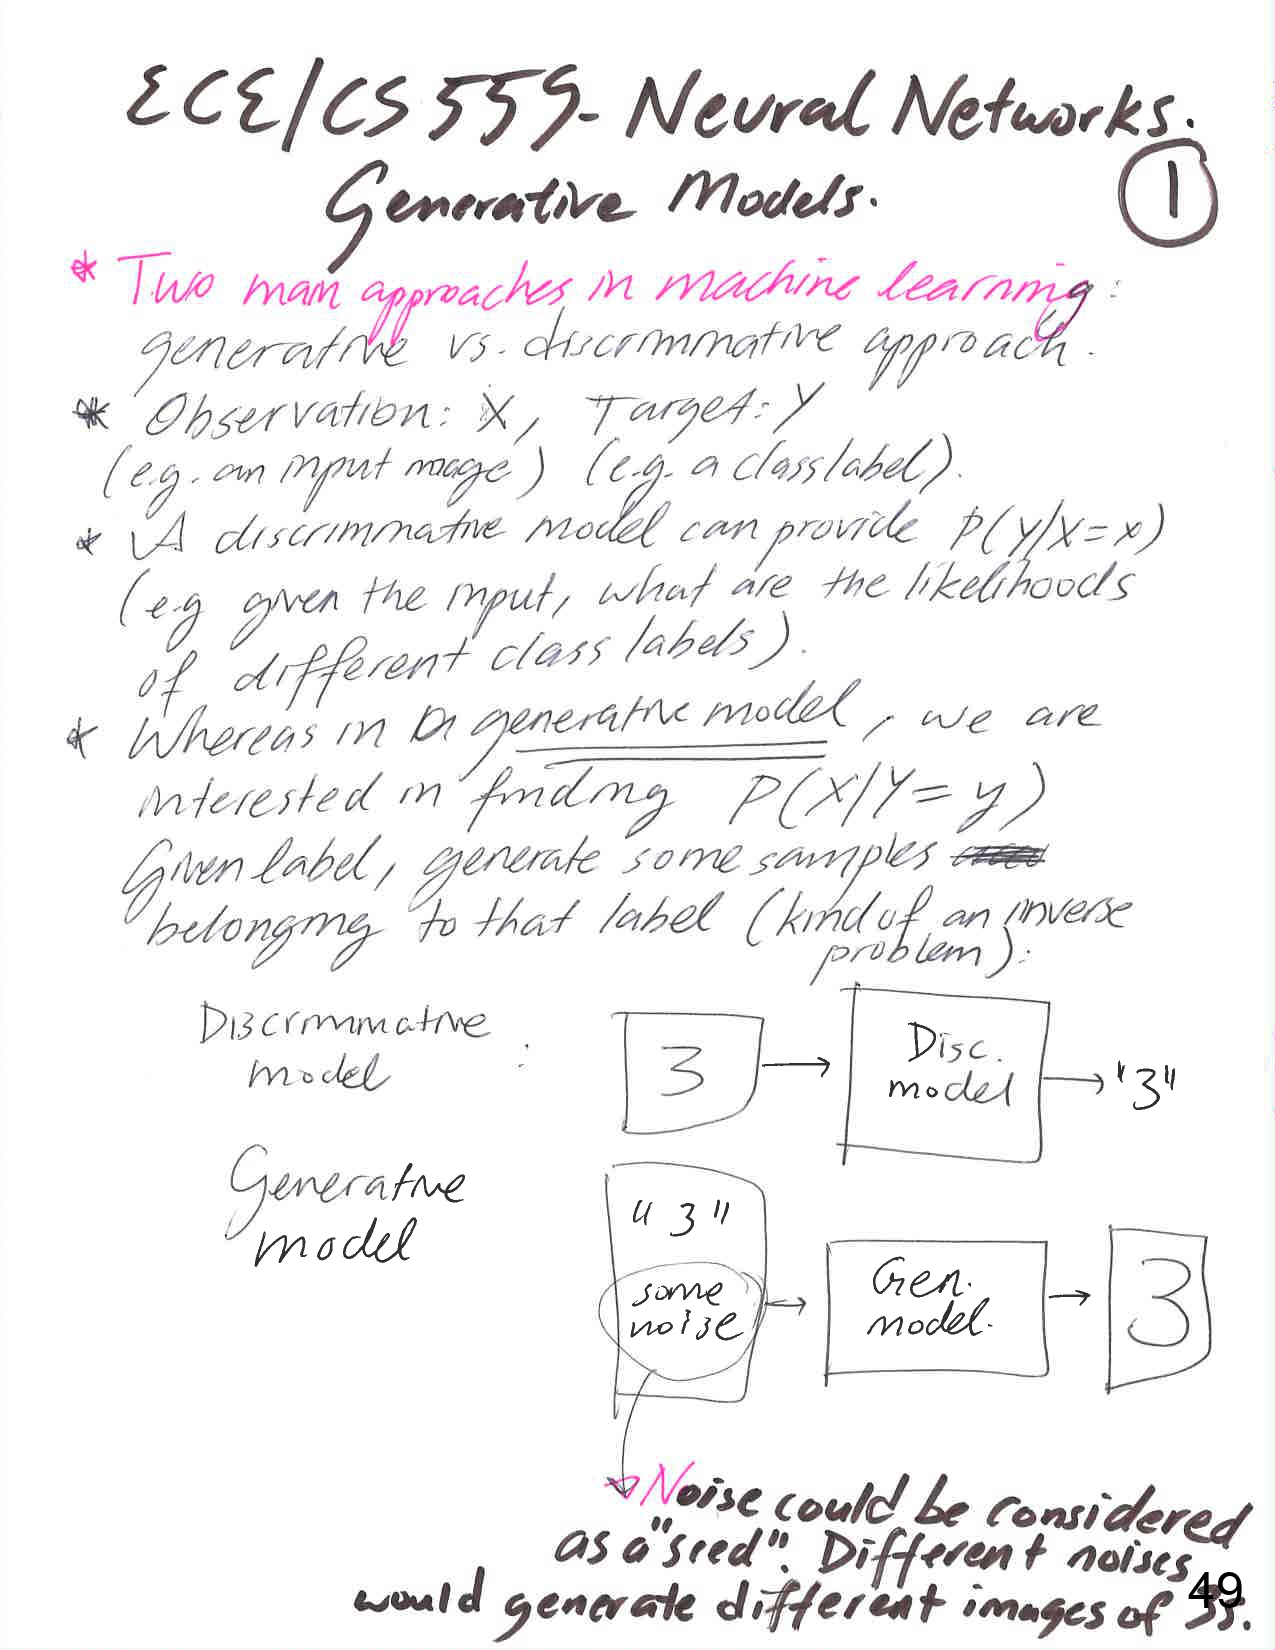 ECE/CS 559- Neural Networks.
Generative Models.
1
* Two main approaches in machine learning:
generative vs. discriminative approach.
* Observation: X, Target: Y
(e.g. an input image) (e.g. a class label).
* A discriminative model can provide P(Y|X=x)
(e.g given the input, what are the likelihoods
of different class labels).
* Whereas in a generative model, we are
interested in finding P(X|Y=y)
Given label, generate some samples
belonging to that label (kind of an inverse
problem):
Discriminative
model :
3
Disc.
model
"3"
Generative
model
"3"
some
noise
Gen.
model.
3
Noise could be considered
as a "seed". Different noises
would generate different images of 3s.
49